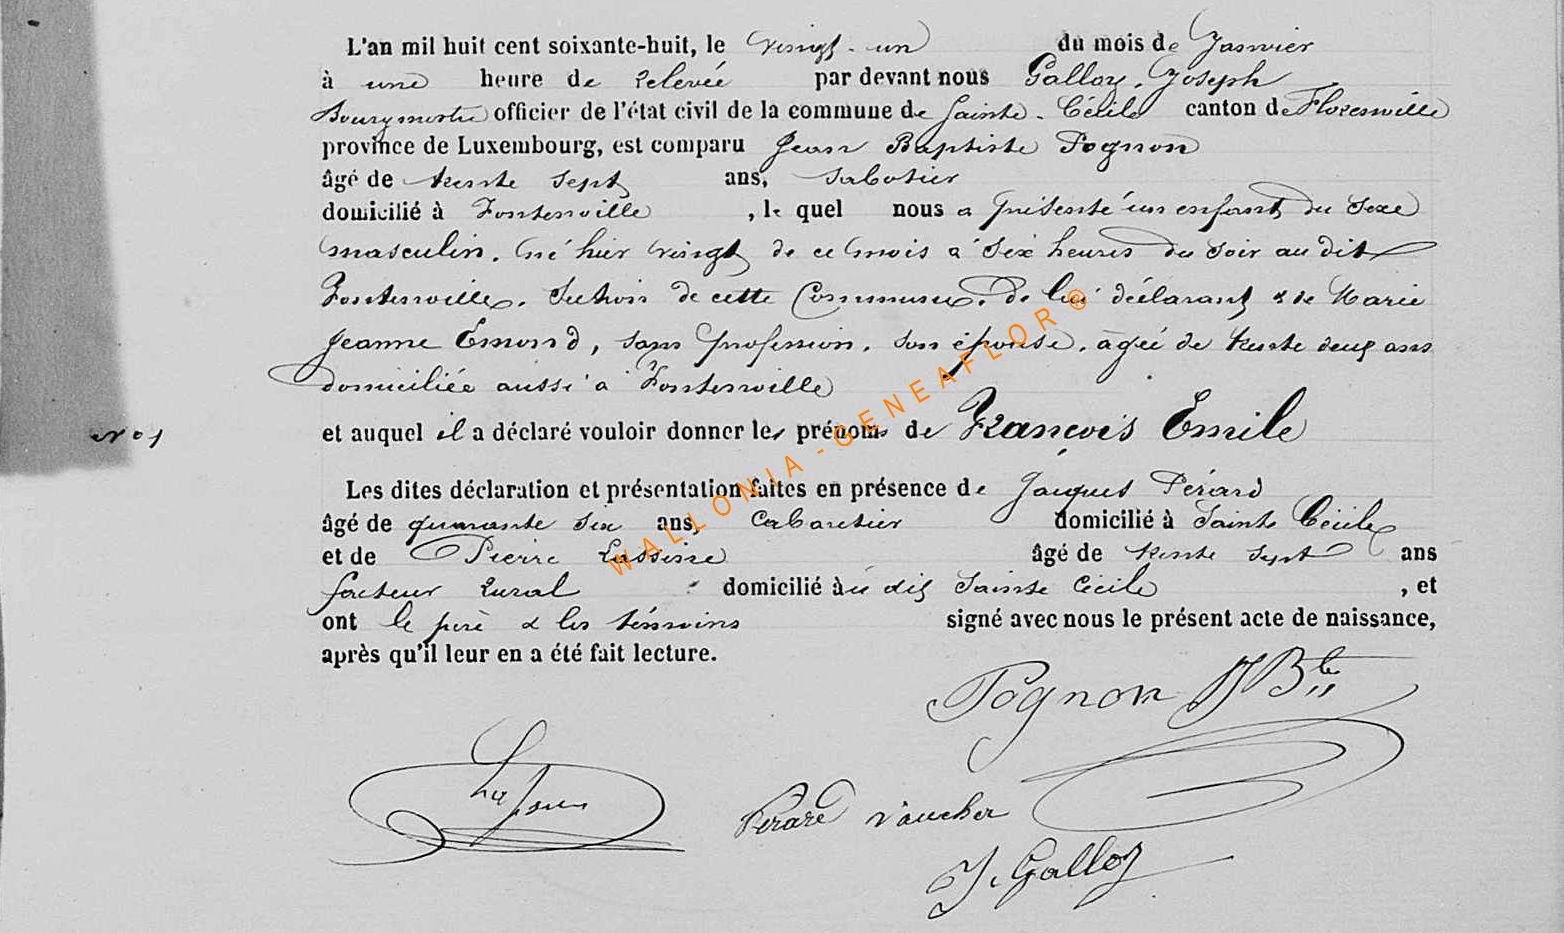 L'an mil huit cent soixante-huit, le vingt-un du mois de Janvier
à une heure de relevée par devant nous Galloy, Joseph
Bourgmestre officier de l'état civil de la commune de Sainte-Cécile canton de Florenville
province de Luxembourg, est comparu Jean Baptiste Pognon
âgé de trente sept ans, sabotier
domicilié à Fontenville, le quel nous a présenté un enfant du sexe
masculin, né hier vingt de ce mois à six heures du soir au dit
Fontenville, section de cette Commune, de lui déclarant & de Marie
Jeanne Emond, sans profession, son épouse, agée de trente deux ans
domiciliée aussi à Fontenville
N° 1
et auquel il a déclaré vouloir donner les prénoms de François Emile
Les dites déclaration et présentation faites en présence de Jacques Pérard
âgé de quarante six ans, Cabaretier domicilié à Sainte Cécile
et de Pierre Lassine âgé de trente sept ans
facteur rural domicilié àu dit Sainte Cécile, et
ont le père & les témoins signé avec nous le présent acte de naissance,
après qu'il leur en a été fait lecture.
Pognon JBte
Lassine
Pérard Vaucher
J. Galloy
WALLONIA-GENEAFLOR®